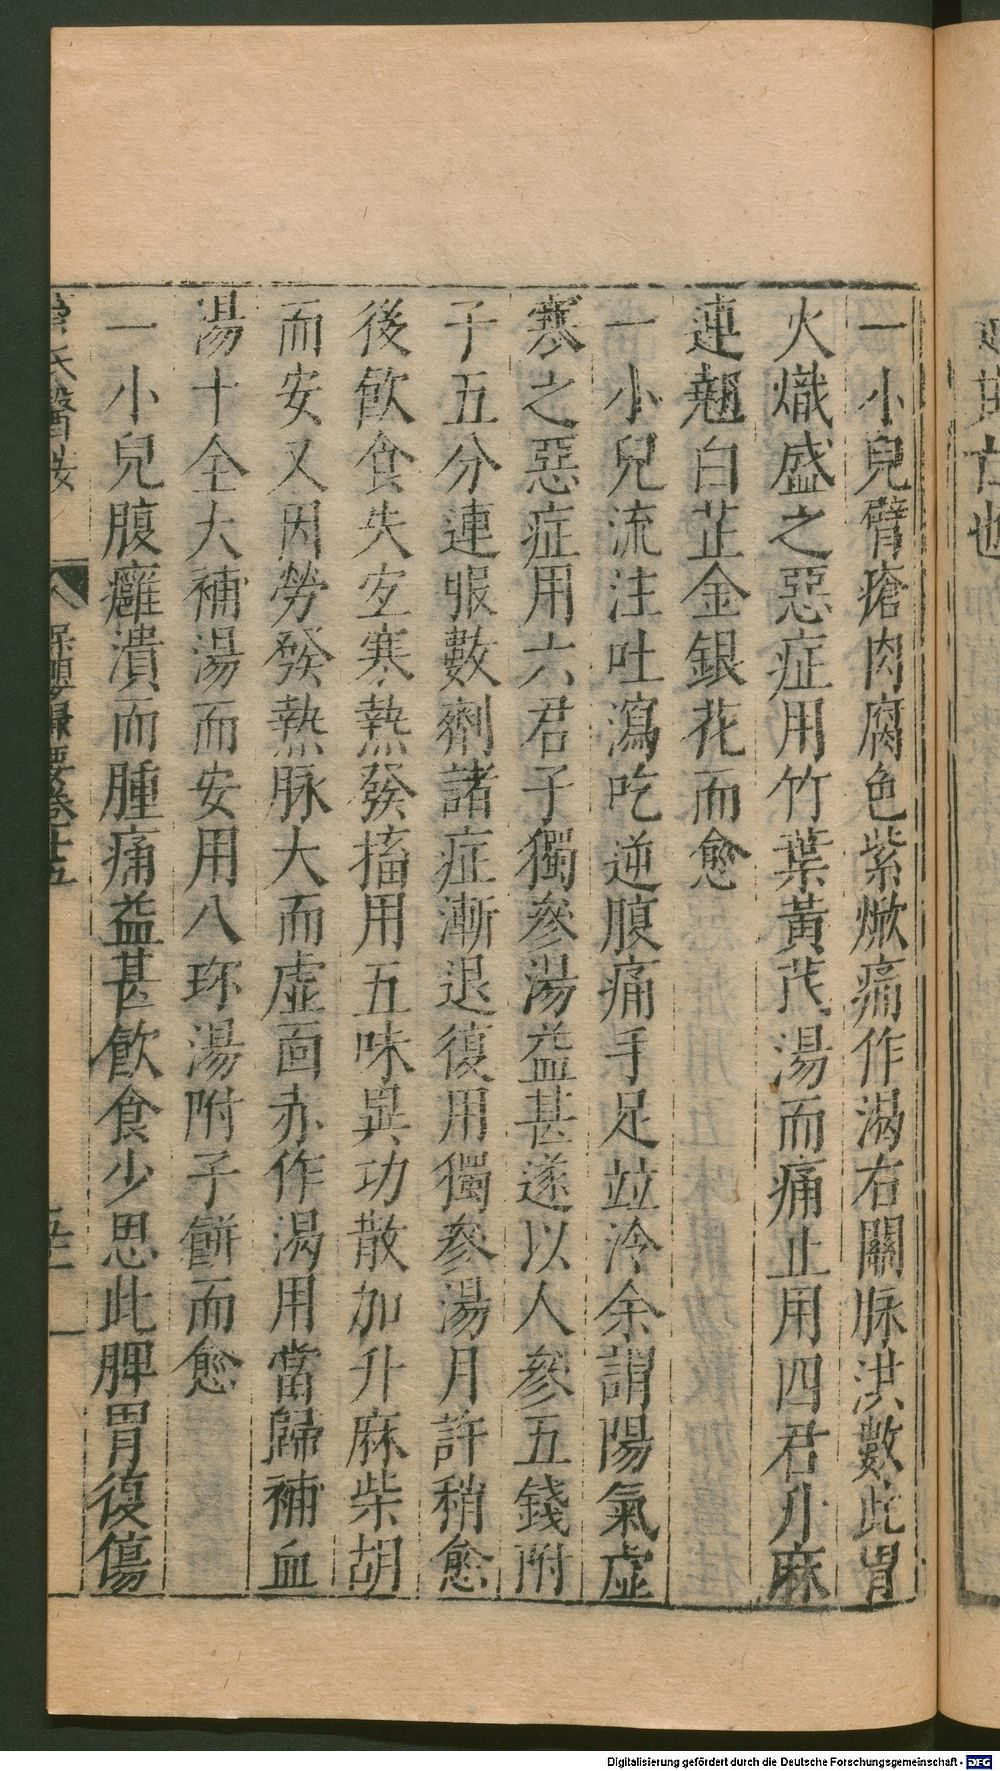 一小兒臂瘡肉腐色紫焮痛作渴右關脉洪數此胃
火熾盛之惡症用竹葉黃茋湯而痛止用四君升麻
連翹白芷金銀花而愈
一小兒流注吐瀉吃逆腹痛手足竝冷余謂陽氣虛
寒之惡症用六君子獨參湯益甚遂以人參五錢附
子五分連服數劑諸症漸退復用獨參湯月許稍愈
後飲食失宜寒熱發搐用五味異功散加升麻柴胡
而安又因勞發熱脉大而虛面赤作渴用當歸補血
湯十全大補湯而安用八珎湯附子餅而愈
一小兒腹癰潰而腫痛益甚飲食少思此脾胃復傷
氏醫案
保嬰撮要卷十五
Digitalisierung gefördert durch die Deutsche Forschungsgemeinschaft - DFG